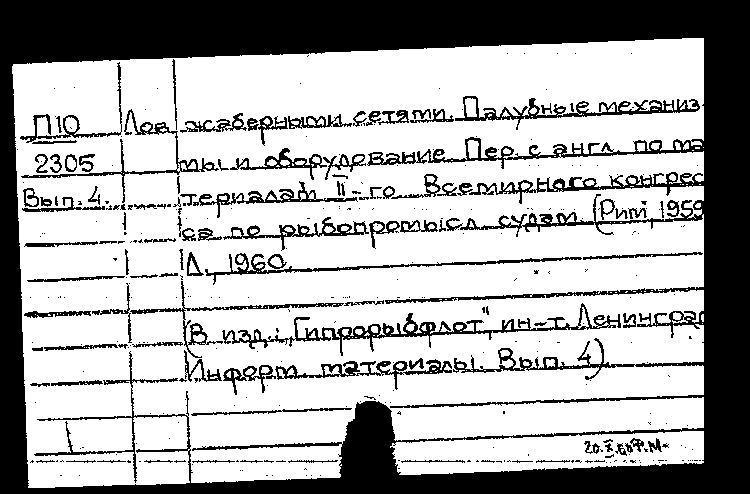 П10 Лов жаберными сетями. Палубные механиз-
2305 мы и оборудование. Пер. с англ. по ма
Вып. 4. териалам II-го Всемирного конгрес
са по рыбопромысл. судам. (Рим, 1959
Л., 1960.
(В изд.: "Гипрорыбфлот", ин-т. Ленинград
Информ. материалы. Вып. 4)
20.X.60